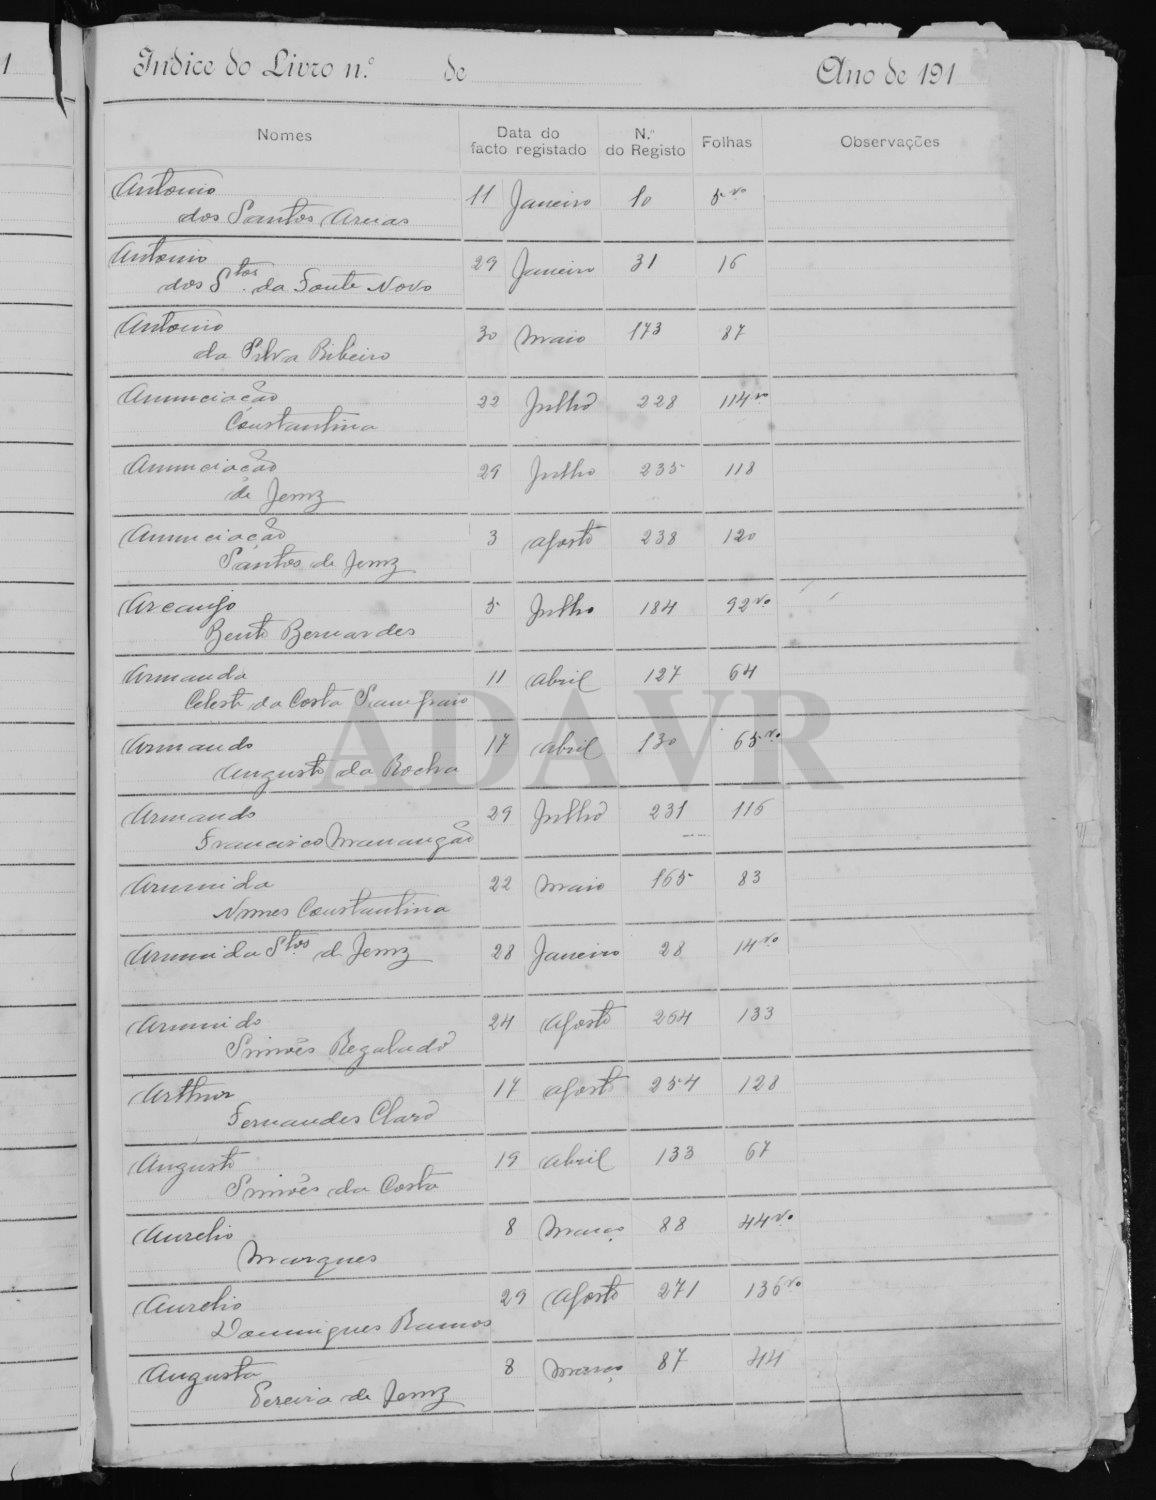 1
Indice do Livro n.º de Ano de 191
Nomes Data do facto registado N.º do Registo Folhas Observações
Antonio 11 Janeiro 10 5 vo
dos Santos Areias
Antonio 29 Janeiro 31 16
dos Stos. da Fonte Novo
Antonio 30 Maio 173 87
da Silva Ribeiro
Anunciação 22 Julho 228 114 vo
Constantina
Anunciação 29 Julho 235 118
de Jesus
Anunciação 3 Agosto 238 120
Santos de Jesus
Arcanjo 5 Julho 184 92 vo
Bento Bernardes
Armanda 11 Abril 127 64
Celeste da Costa
Armando 17 Abril 130 65 vo
Augusto da Rocha
ADAVR
Armando 29 Julho 231 116
Francisco
Arminda 22 Maio 165 83
Nunes Constantina
Arminda Stos de Jesus 28 Janeiro 28 14 vo
Armindo 24 Agosto 264 133
Simões Regalado
Arthur 17 Agosto 254 128
Fernandes Claro
Augusto 19 Abril 133 67
Simões da Costa
Aurelio 8 Março 88 44 vo
Marques
Aurelio 29 Agosto 271 136 vo
Domingues Ramos
Augusta 8 Março 87 44
Pereira de Jesus